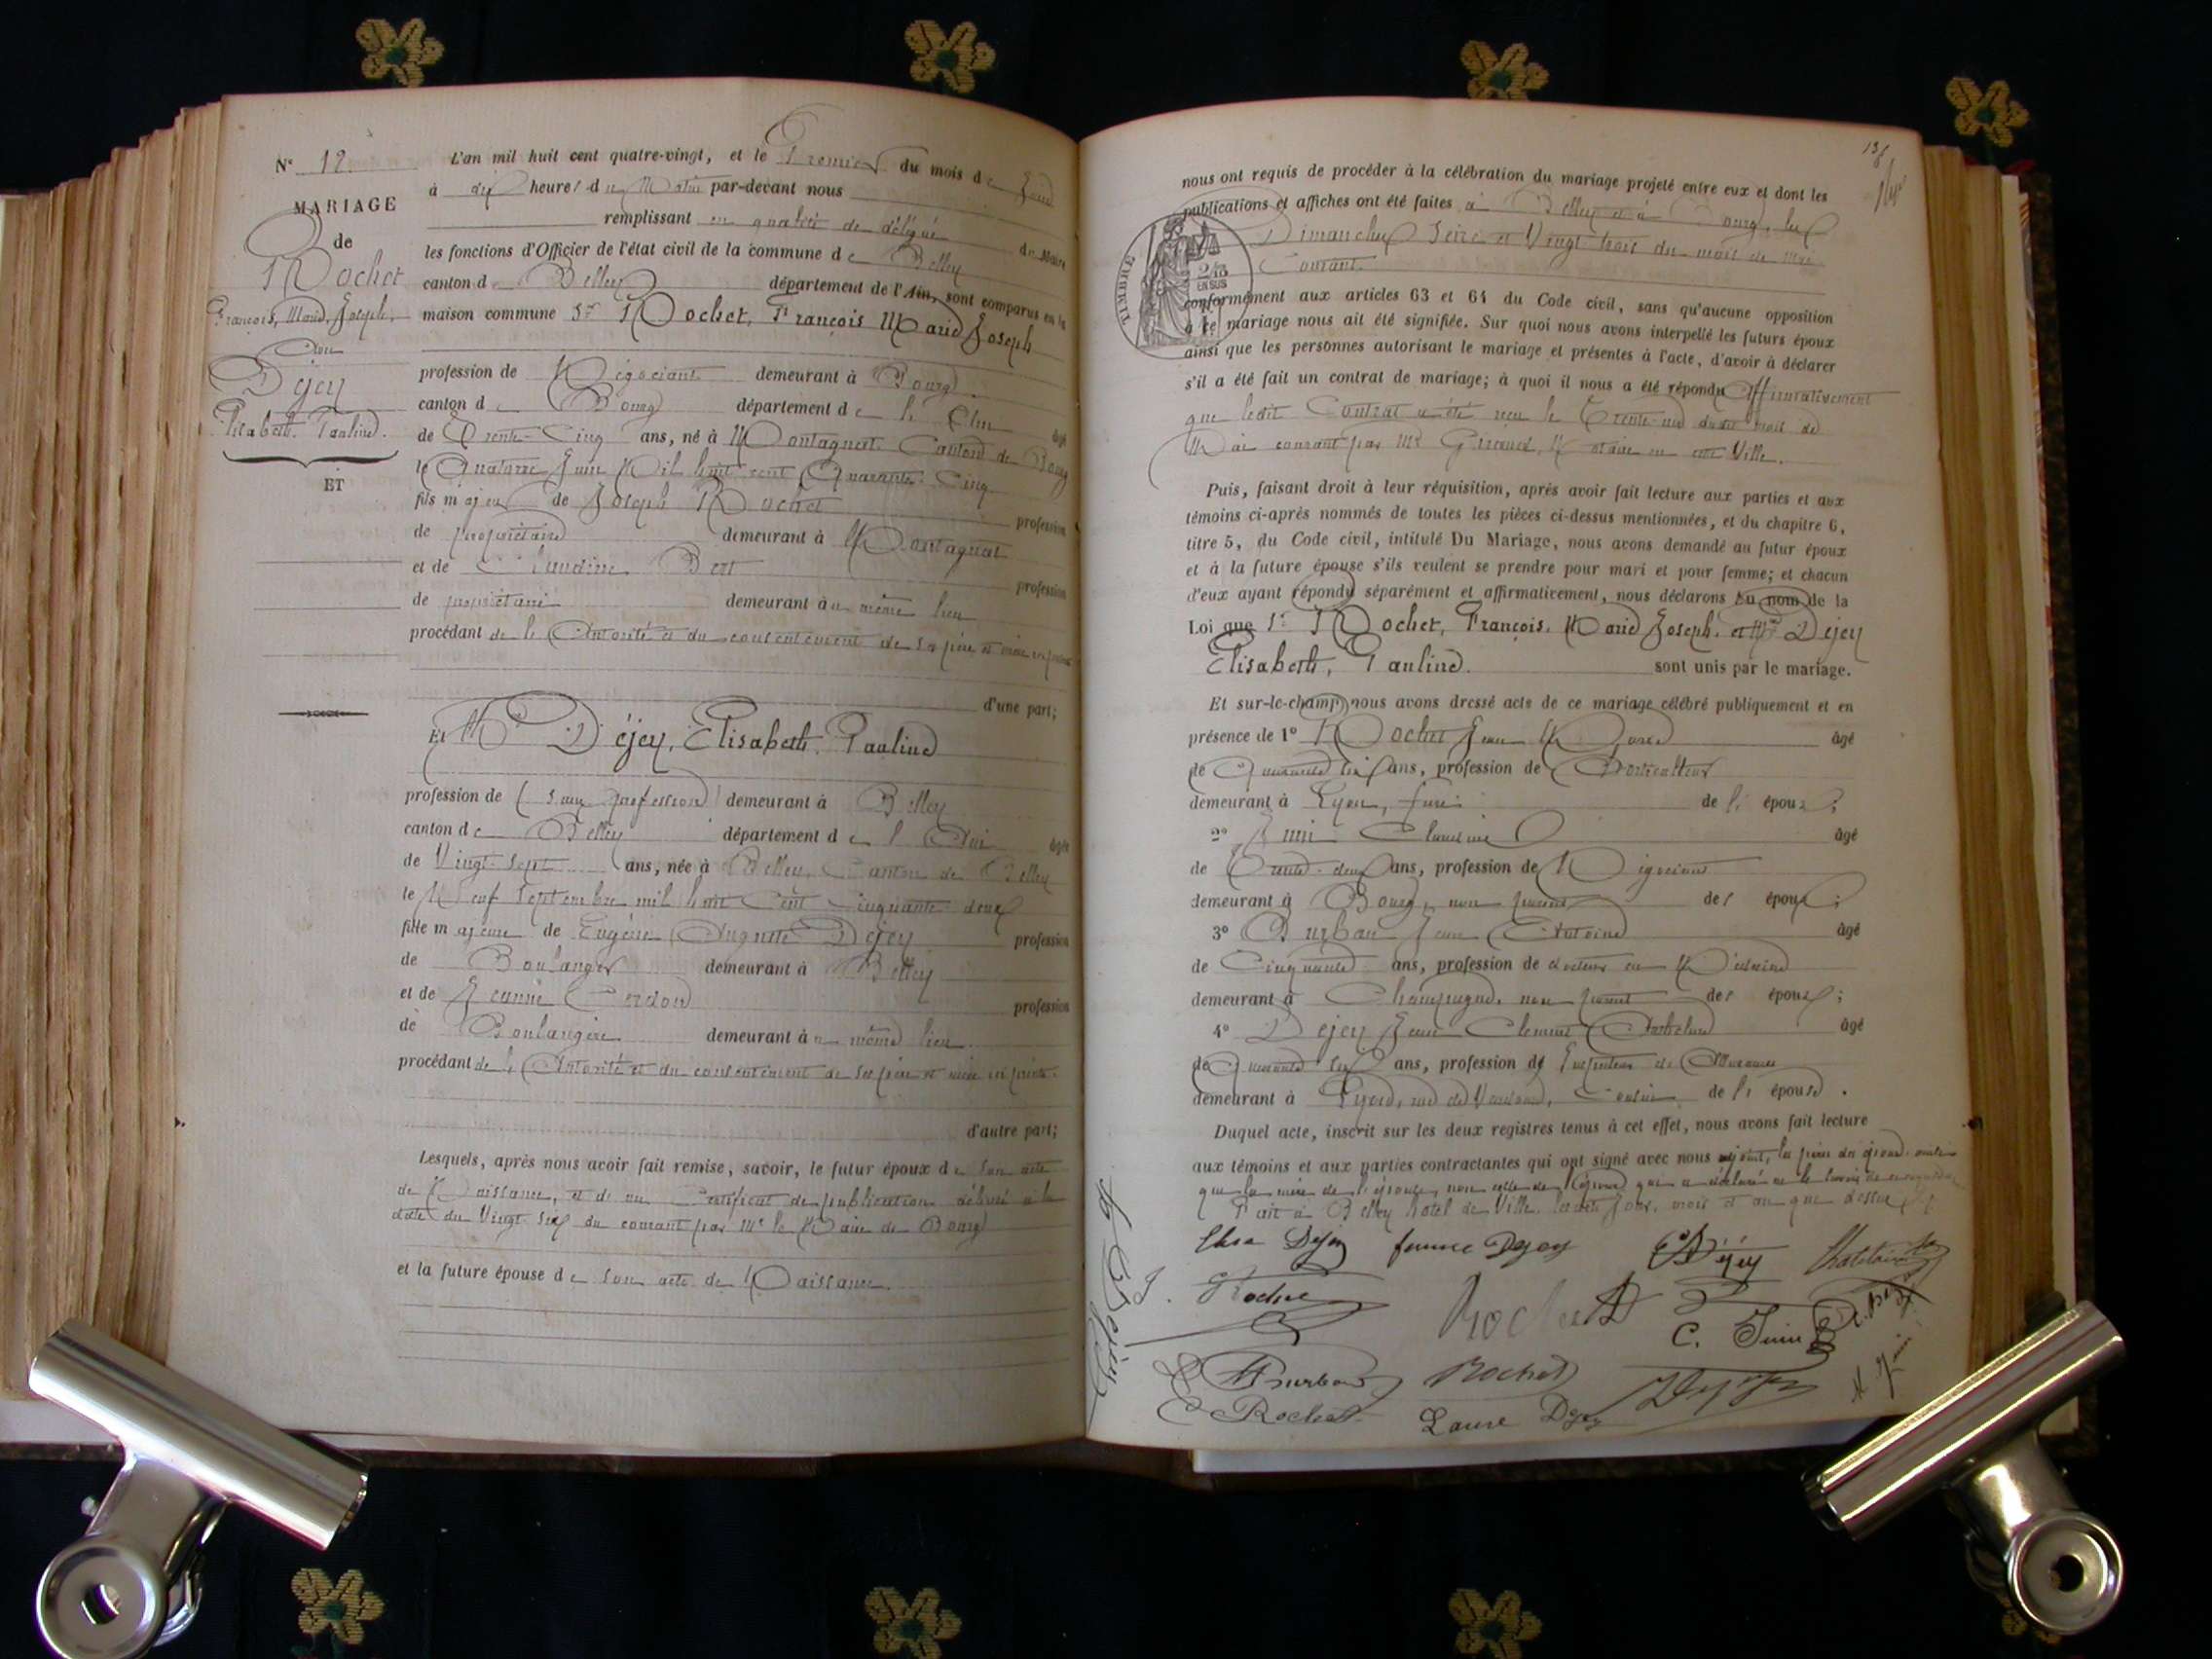 N° 12.
L'an mil huit cent quatre-vingt, et le Premier du mois de Juin
à dix heures du Matin par-devant nous
MARIAGE
remplissant en qualité de délégué du Maire
de
les fonctions d'Officier de l'état civil de la commune de Belley
Rochet
canton de Belley département de l'Ain, sont comparus en la
François, Marie, Joseph,
maison commune Sr Rochet, François Marie Joseph
Avec
Dejey
profession de Négociant demeurant à Bourg
canton de Bourg département de l'Ain âgé
Elisabeth. Pauline.
de Trente-Cinq ans, né à Montagnat Canton de Bourg
le Quatorze Juin Mil huit cent Quarante-Cinq
ET
fils majeur de Joseph Rochet profession
de propriétaire demeurant à Montagnat
et de Claudine Bert profession
de propriétaire demeurant au même lieu
procédant de l'Autorité et du consentement de ses père et mère
d'une part;
Et Mlle Déjey, Elisabeth. Pauline
profession de (sans profession) demeurant à Belley
canton de Belley département de l'Ain âgée
de Vingt-Sept ans, née à Belley, Canton de Belley
le Neuf Septembre mil huit Cent Cinquante-deux
fille majeure de Eugène Auguste Dejey profession
de Boulanger demeurant à Belley
et de Jeannie Cerdon profession
de Boulangère demeurant au même lieu
procédant de l'Autorité et du consentement de ses père et mère
d'autre part;
Lesquels, après nous avoir fait remise, savoir, le futur époux de son acte
de Naissance, et de un Certificat de publication délivré à la
date du Vingt-Six du courant par Mr le Maire de Bourg
et la future épouse de son acte de Naissance.
nous ont requis de procéder à la célébration du mariage projeté entre eux et dont les
publications et affiches ont été faites à Belley et à Bourg, les
Dimanches Seize et Vingt trois du mois de Mai
Courant.
TIMBRE
2/10 EN SUS
conformément aux articles 63 et 64 du Code civil, sans qu'aucune opposition
à ce mariage nous ait été signifiée. Sur quoi nous avons interpellé les futurs époux
ainsi que les personnes autorisant le mariage et présentes à l'acte, d'avoir à déclarer
s'il a été fait un contrat de mariage; à quoi il nous a été répondu Affirmativement
que ledit Contrat a été reçu le Trente-un dudit mois de
Mai courant par Me Notaire en cette Ville.
Puis, faisant droit à leur réquisition, après avoir fait lecture aux parties et aux
témoins ci-après nommés de toutes les pièces ci-dessus mentionnées, et du chapitre 6,
titre 5, du Code civil, intitulé Du Mariage, nous avons demandé au futur époux
et à la future épouse s'ils veulent se prendre pour mari et pour femme; et chacun
d'eux ayant répondu séparément et affirmativement, nous déclarons au nom de la
Loi que Sr Rochet, François. Marie Joseph. et Mlle Dejey
Elisabeth, Pauline. sont unis par le mariage.
Et sur-le-champ nous avons dressé acte de ce mariage célébré publiquement et en
présence de 1° Rochet Jean Marie âgé
de ans, profession de Horticulteur
demeurant à Lyon, frère de l'époux;
2° Juin Claudine âgé
de Trente-deux ans, profession de Négociant
demeurant à Bourg, non parent des époux;
3° Burban Jean Antoine âgé
de Cinquante ans, profession de docteur en Médecine
demeurant à Champagne, non parent des époux;
4° Dejey Jean Clément Anthelme âgé
de Quarante-six ans, profession de Inspecteur de
demeurant à Lyon, rue de Vendôme, Cousin de l'épouse.
Duquel acte, inscrit sur les deux registres tenus à cet effet, nous avons fait lecture
aux témoins et aux parties contractantes qui ont signé avec nous
que la mère de l'épouse, non celle de l'époux qui a déclaré ne le savoir
Fait à Belley hôtel de Ville. lesdits Jour. mois et an que dessus
Elisa Dejey Jeannie Dejey E Déjey
J. Rochet Rochet C. Juin
Burban Rochet Dejey
E Rochet Laure Dejey